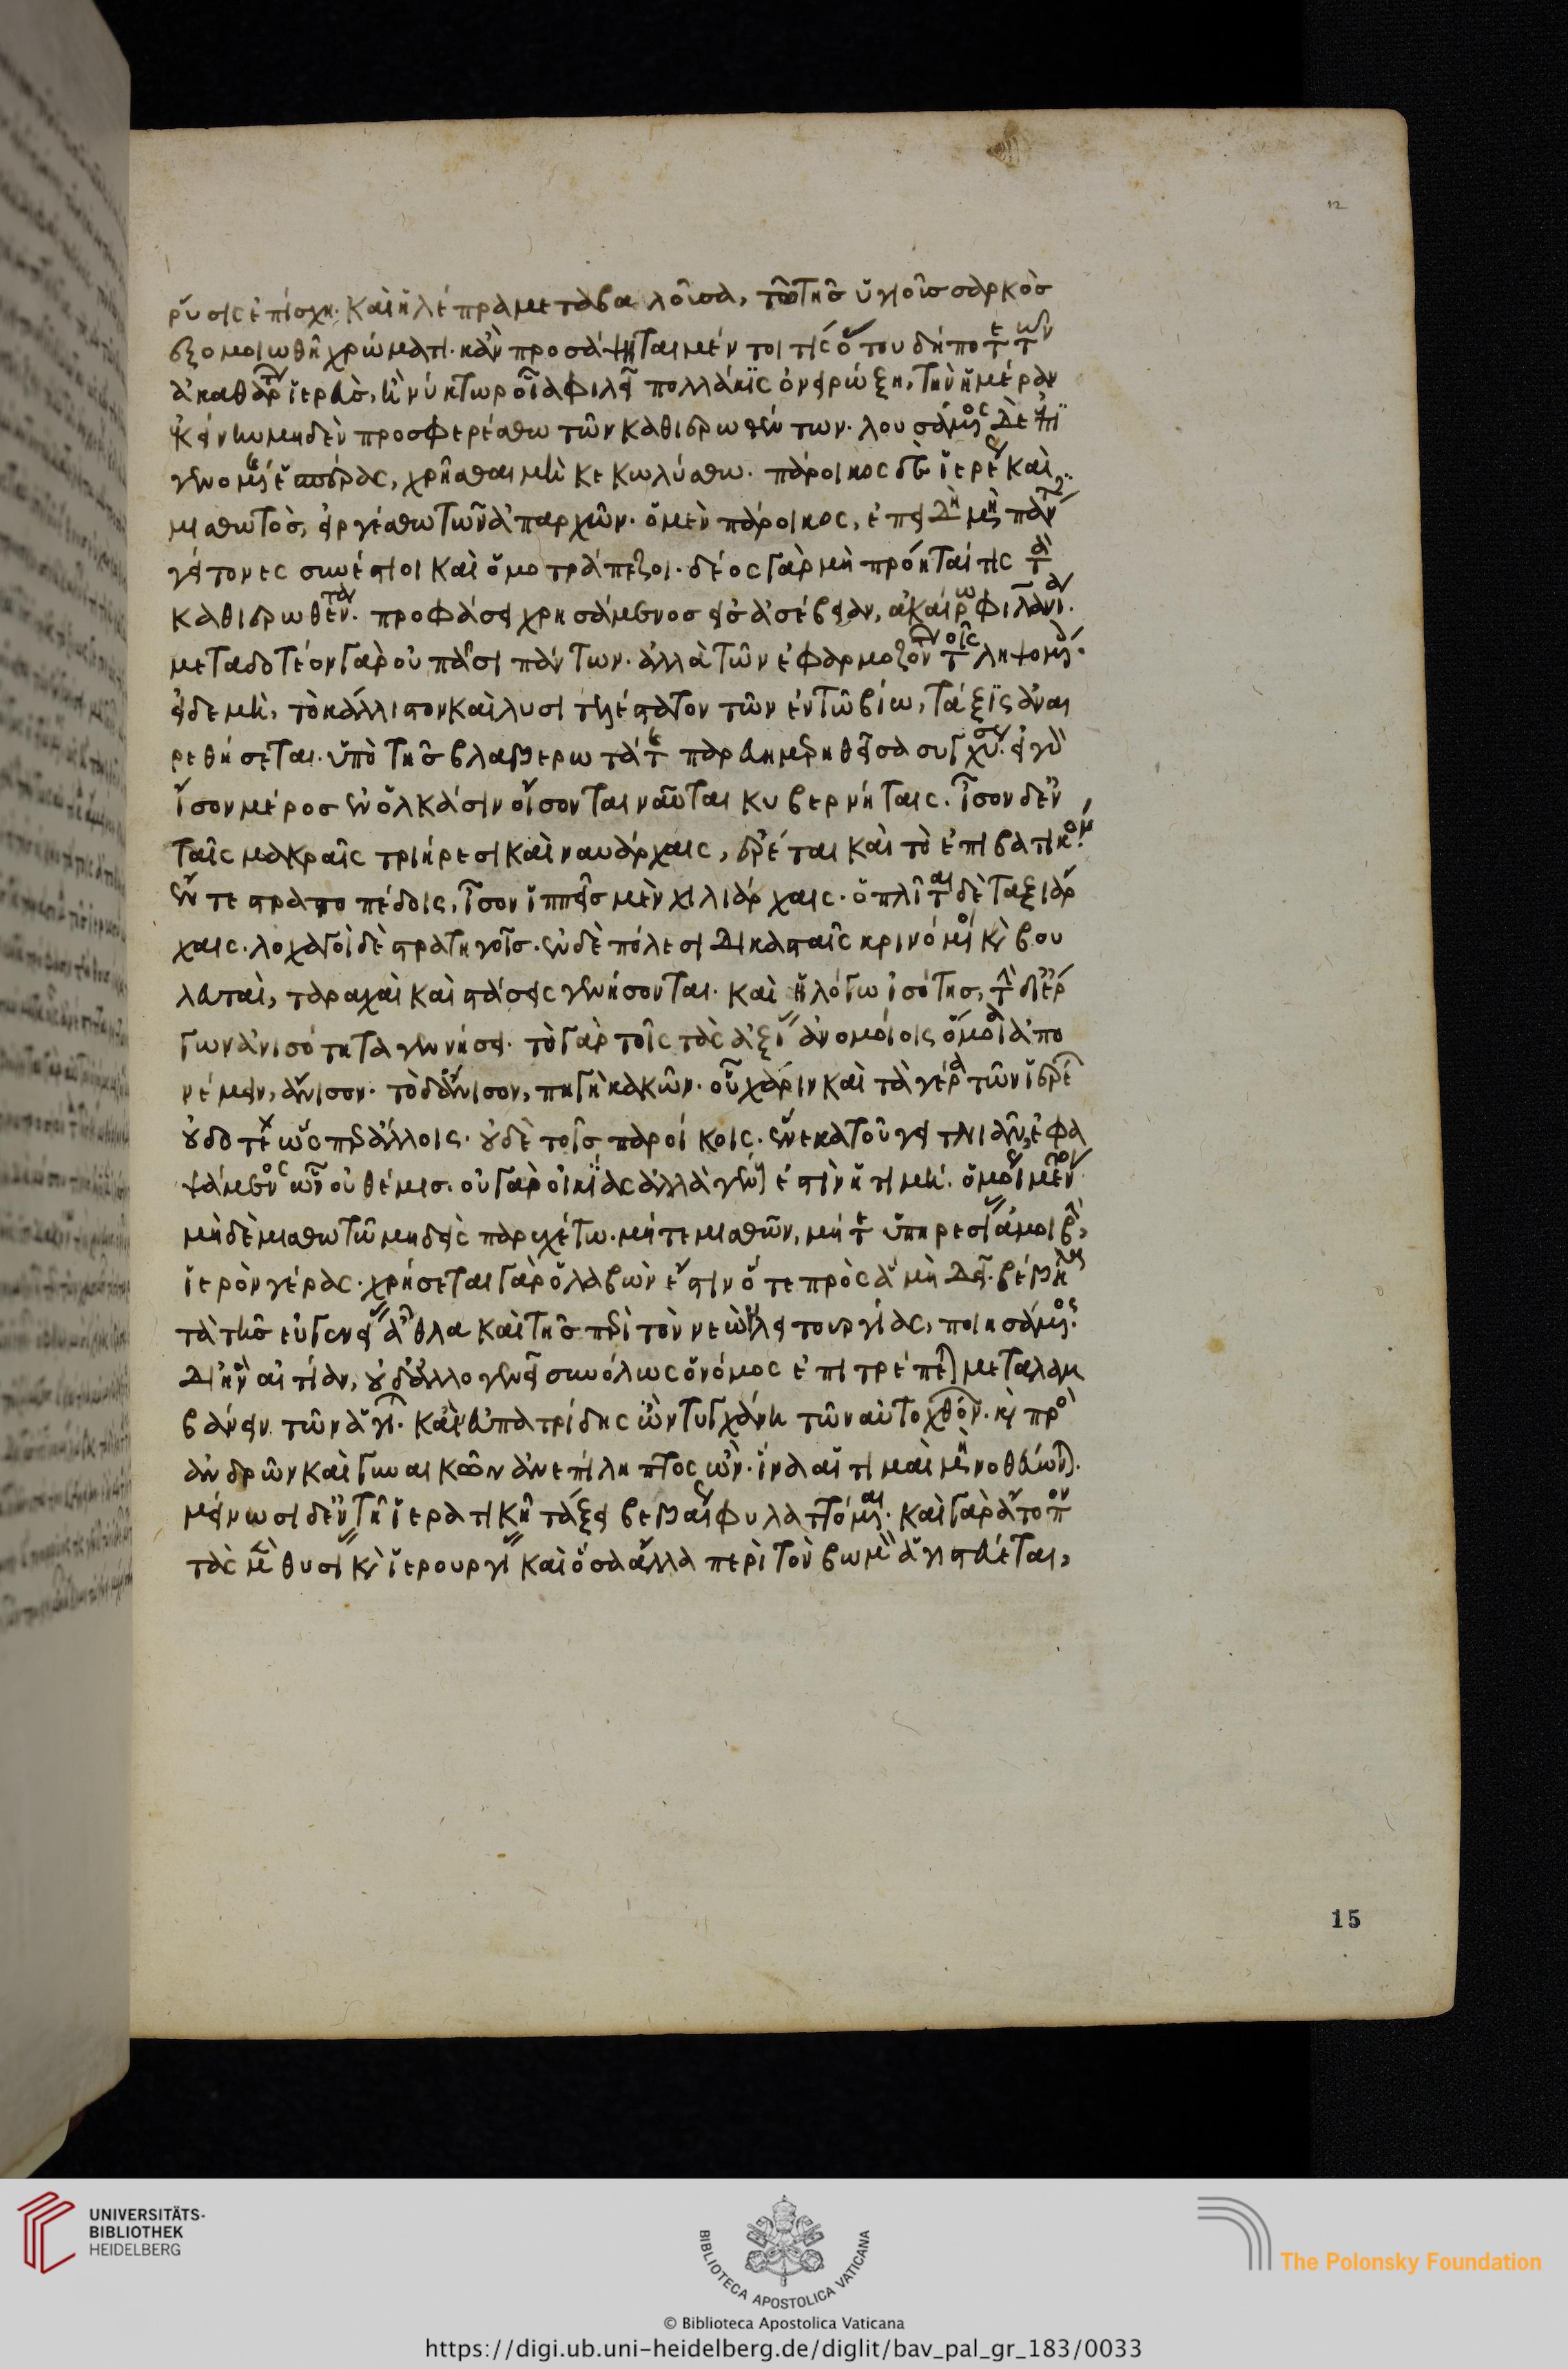 ρύσις ἐπίσχη· καὶ ἡ λέπρα μεταβαλοῦσα, τῶ τῆς ὑγιοῦς σαρκὸς
ἐξομοιωθῆ χρώματι· κἂν προσάψηται μέντοι τὶς ὅτου δήποτε τῶν
ἀκαθάρτων ἱερεὺς, ἢ νύκτωρ οἷα φιλεῖ πολλάκις ὀνειρώξη, τὴν ἡμέραν
ἐκείνην μηδὲν προσφερέσθω τῶν καθιερωθέντων· λουσάμενος δὲ ἐπι
γενομένης ἑσπέρας, χρῆσθαι μὴ κεκωλύσθω· πάροικος δὲ ἱερέως καὶ
μισθωτὸς, εἰργέσθω τῶν ἀπαρχῶν· ὁ μὲν πάροικος, ἐπειδὴ μὴ πάντες
γείτονες συνέστιοι καὶ ὁμοτράπεζοι· δέος γὰρ μὴ πρόηταί τις τὰ
καθιερωθέντα· προφάσει χρησάμενος εἰς ἀσέβειαν, ἀκαίρω φιλανθρωπία·
μεταδοτέον γὰρ οὐ πᾶσι πάντων· ἀλλὰ τῶν ἐφαρμοζόντων τοῖς ληψομένοις·
εἰ δὲ μὴ, τὸ κάλλιστον καὶ λυσιτελέστατον τῶν ἐν τῶ βίω, τάξις ἀναι
ρεθήσεται· ὑπὸ τῆς βλαβερωτάτης παρευημερηθεῖσα συγχύσεως· εἰ γὰρ
ἴσον μέρος ἐν ὁλκάσιν οἴσονται ναῦται κυβερνήταις· ἴσον δ' ἐν
ταῖς μακραῖς τριήρεσι καὶ ναυάρχαις, ἐρέται καὶ τὸ ἐπιβατικόν·
ἔν τε στρατοπέδοις, ἴσον ἱππεῖς μὲν χιλιάρχαις· ὁπλῖται δὲ ταξιάρ
χαις· λοχαγοὶ δὲ στρατηγοῖς· ἐν δὲ πόλεσι δικασταῖς κρινόμενοι καὶ βου
λευταὶ, ταραχαὶ καὶ στάσεις γενήσονται· καὶ ἡ λόγω ἰσότης, τὴν δι' ἔρ
γων ἀνισότητα γεννήσει· τὸ γὰρ τοῖς τὰς ἀξίας ἀνομοίοις ὅμοια ἀπο
νέμειν, ἄνισον· τὸ δ' ἄνισον, πηγὴ κακῶν· οὗ χάριν καὶ τὰ γέρα τῶν ἱερέων
οὐ δοτέον ὥσπερ ἄλλοις· οὐδὲ τοῖς παροίκοις· ἕνεκα τοῦ γειτνιᾶν, ἐφα
ψάμενος ὧν οὐ θέμις· οὐ γὰρ οἰκίας ἀλλὰ γένους ἐστὶν ἡ τιμή· ὁμοίως μέντοι
μὴ δὲ μισθωτῶ μηδεὶς παρεχέτω· μήτε μισθῶν, μήτε ὑπηρεσίας ἀμοιβὴν,
ἱερὸν γέρας· χρήσεται γὰρ ὁ λαβὼν ἔστιν ὅτε πρὸς ἃ μὴ δεῖ· βέβηλα
τὰ τῆς εὐγενείας ἆθλα καὶ τῆς περὶ τὸν νεὼν λειτουργίας, ποιησάμενος·
δι' ἣν αἰτίαν, οὐδ' ἄλλο γενεῖ συνόλως ὁ νόμος ἐπιτρέπει μεταλαμ
βάνειν τῶν ἁγίων· κἂν εὐπατρίδης ὢν τυγχάνη τῶν αὐτοχθόνων· καὶ πρὸς
ἀνδρῶν καὶ γυναικῶν ἀνεπίληπτος ὤν· ἵνα αἱ τιμαὶ μὴ νοθεύωνται·
μένωσι δ' ἐν τῆ ἱερατικῆ τάξει βεβαίως φυλαττόμεναι· καὶ γὰρ ἄτοπον
τὰς μὲν θυσίας καὶ ἱερουργίας καὶ ὅσα ἄλλα περὶ τὸν βωμὸν ἁγιστεύεται,
12
15
UNIVERSITÄTS-
BIBLIOTHEK
HEIDELBERG
BIBLIOTECA APOSTOLICA VATICANA
The Polonsky Foundation
© Biblioteca Apostolica Vaticana
https://digi.ub.uni-heidelberg.de/diglit/bav_pal_gr_183/0033